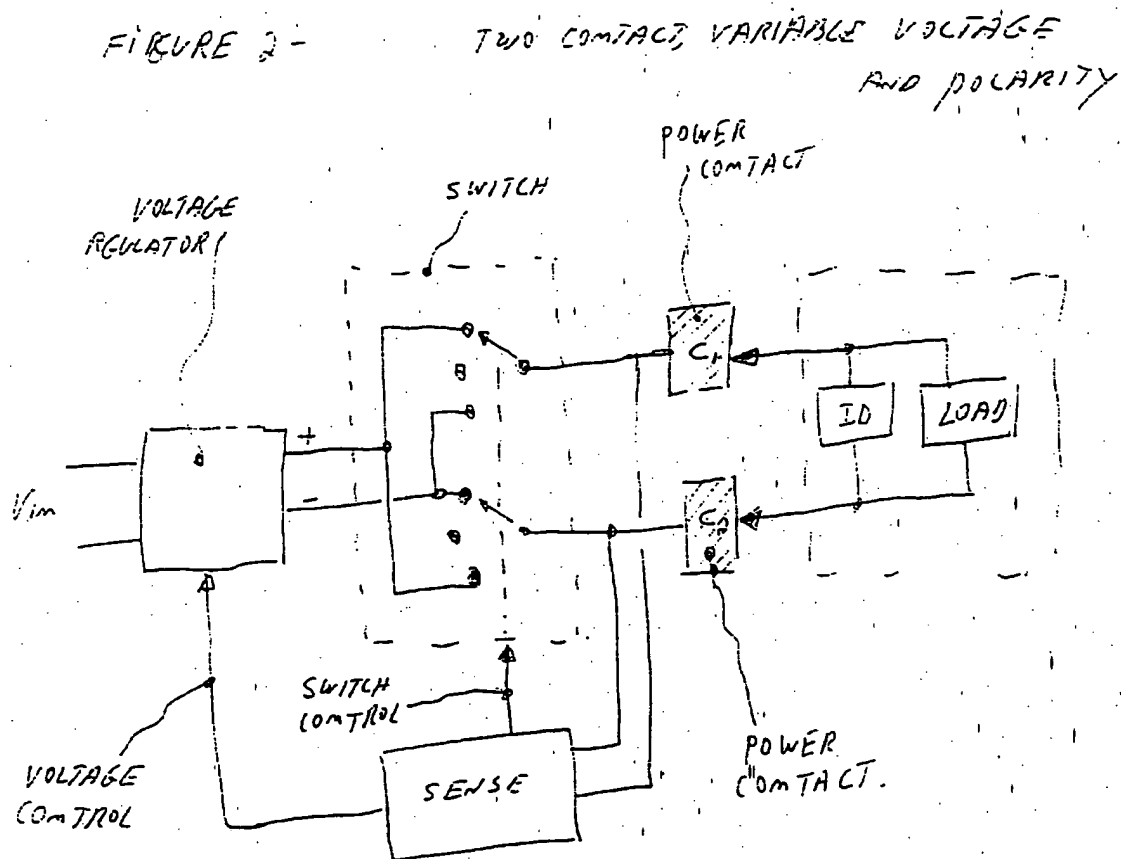 FIGURE 2-
TWO COMTACT, VARIABLE VOLTAGE
AND POLARITY
POWER
COMTACT
SWITCH
VOLTAGE
REGULATOR
C1
ID
LOAD
+
-
Vin
C2
SWITCH
COMTROL
POWER
COMTACT.
VOLTAGE
COMTROL
SENSE